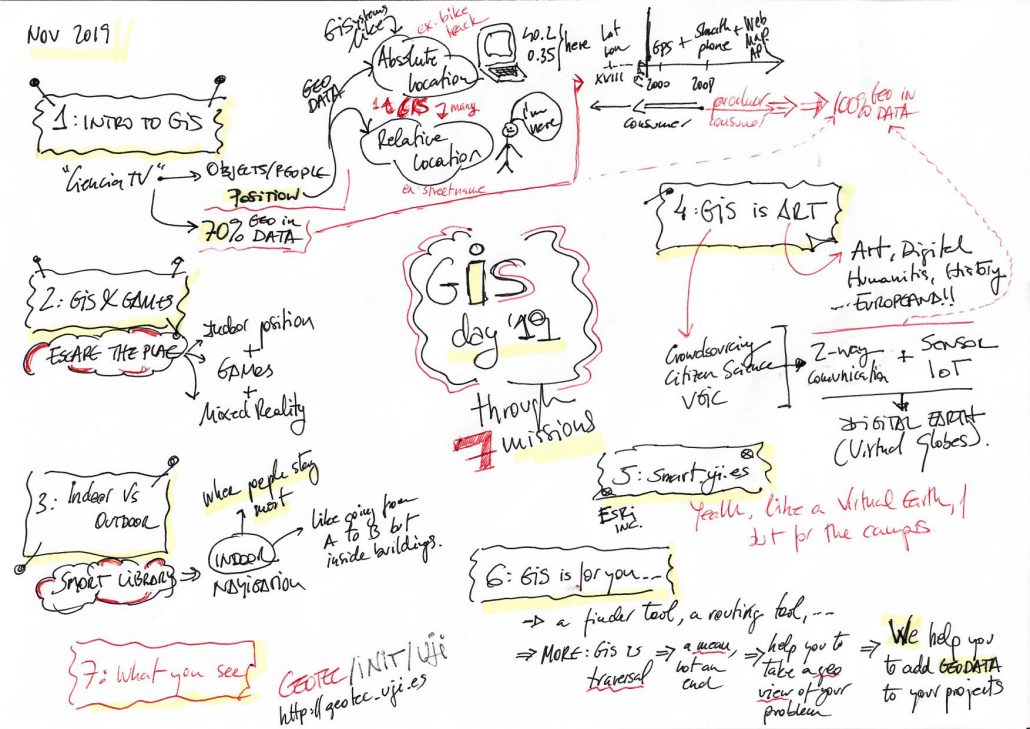 NOV 2019
1: INTRO TO GIS
"Ciencia TV"
OBJECTS/PEOPLE
POSITION
70% GEO IN
DATA
GEO
DATA
GISystems
Like
ex: bike
track
Absolute
Location
40.2
0.35
here
Lat
Lon
1
GIS
many
Relative
Location
ex: streetname
I'm
here
XVIII
GPS + Smart + Web
phone
Map
API
2000
2008
consumer
producer
consumer
100% GEO IN
DATA
2: GIS & GAMES
ESCAPE THE PLACE
Indoor position
+
GAMES
+
Mixed Reality
GIS
day '19
through
7 missions
4: GIS is ART
Art, Digital
Humanitis, History
... EUROPEANA!!
Crowdsourcing
Citizen Science
VGIC
2-way
comunication
+ SENSOR
IoT
DIGITAL EARTH
(Virtual Globes).
3: Indoor Vs
OUTDOOR
SMART LIBRARY
INDOOR
NAVIGATION
when people stay
most
Like going from
A to B but
inside buildings.
5: Smart.uji.es
ESRI
INC.
Yeahh, like a Virtual Earth,
but for the campus
6: GIS is for you...
a finder tool, a routing tool, ...
⇒ MORE: GIS is
traversal
⇒ a mean,
not an
end
⇒ help you to
take a geo
view of your
problem
⇒ We help you
to add GEODATA
to your projects
7: What you see
GEOTEC/INIT/UJI
http://geotec.uji.es